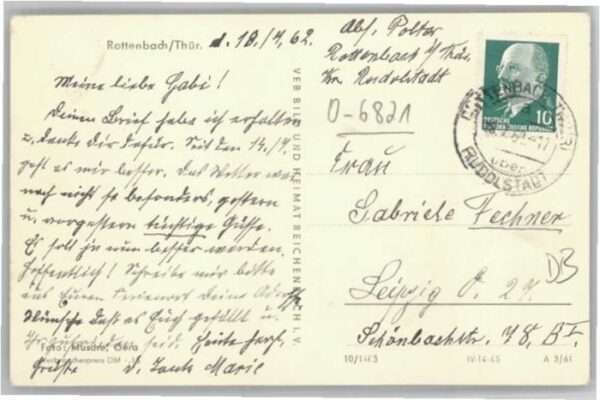 Rottenbach/Thür. d. 18./7.62.
Meine liebe Gabi!
Deinen Brief habe ich erhalten
u. danke Dir dafür. Seit dem 14./7.
geht es mir besser. Das Wetter war
noch nicht so besonders, gestern
u. vorgestern tüchtige Güsse.
Es soll ja nun besser werden.
Hoffentlich! Schreibe mir bitte
aus Eurem Ferienort Deine
Wünsche dass es Euch gefällt u.
Ihr seid. Herzl.
Grüsse d. Tante Marie
Foto: Gera
VEB BILD UND HEIMAT REICHENBACH I. V.
Abs. Polter
Rottenbach/Thür.
Kr. Rudolstadt
O-6821
Frau
Gabriele Fechner
Leipzig O. 27.
Schönbachstr. 78
DB
10
DEUTSCHE
DEMOKRATISCHE REPUBLIK
ROTTENBACH
über
RUDOLSTADT
IV-14-45
A 3/61